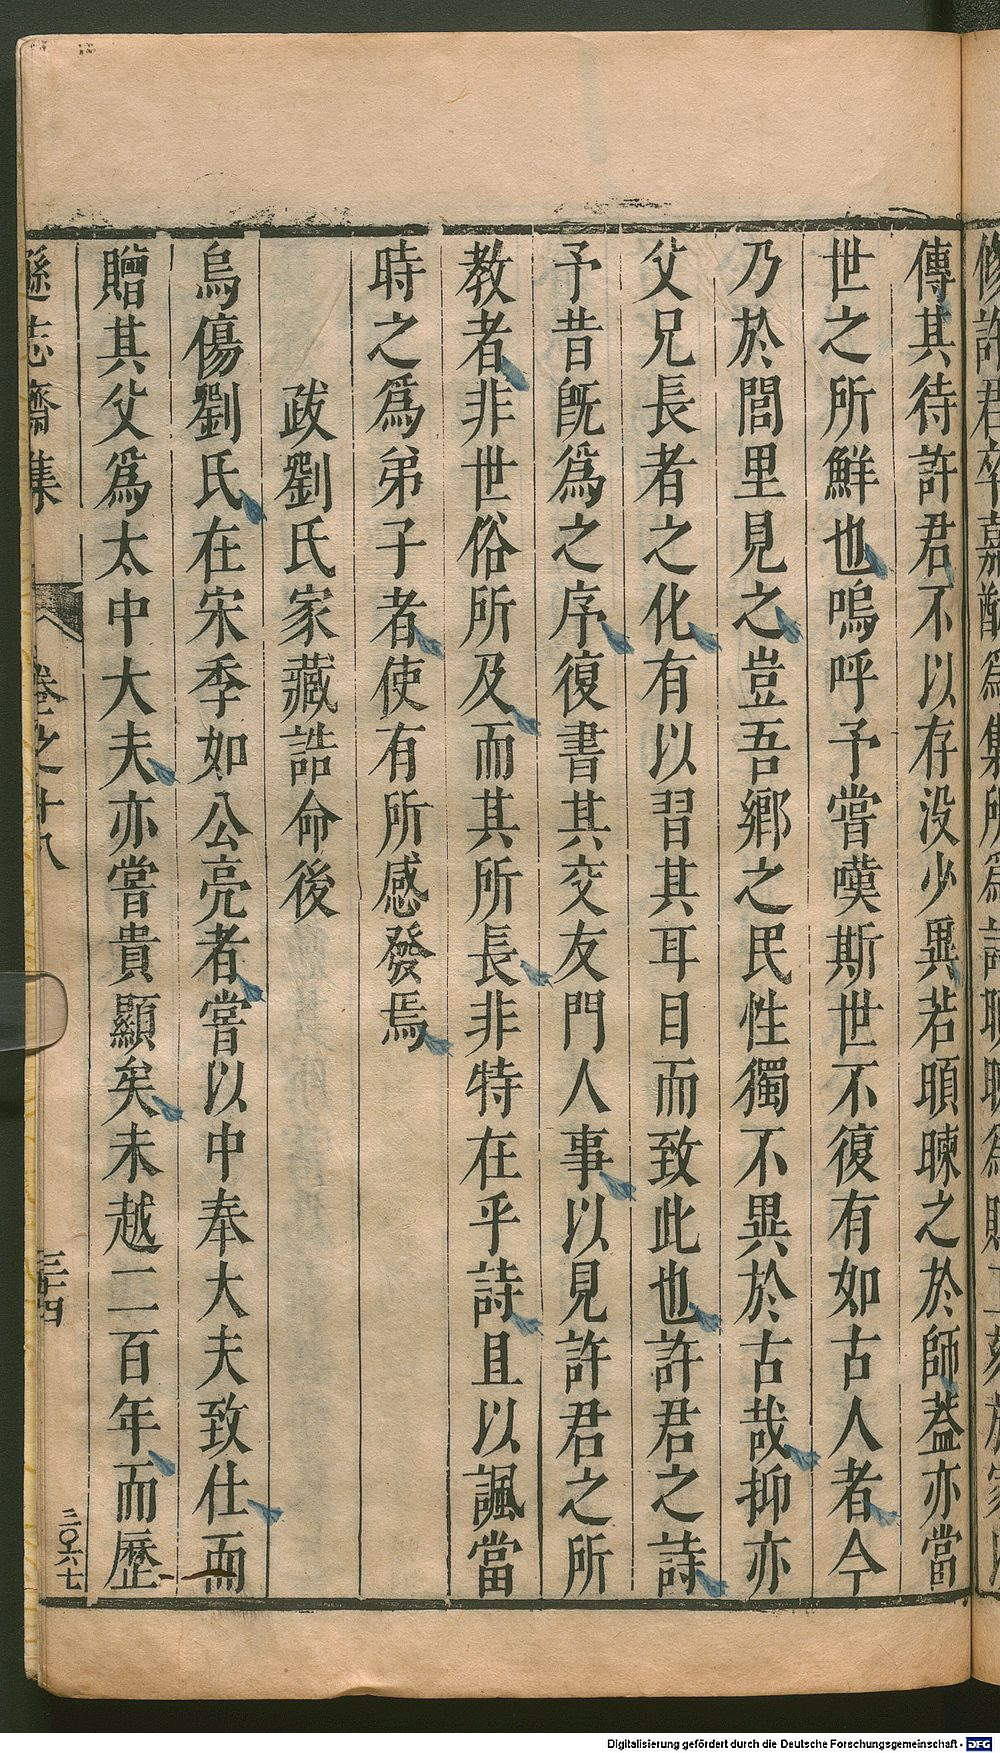 傳其待許君不以存没少異若頤暕之於師葢亦當
世之所鮮也嗚呼予嘗嘆斯世不復有如古人者今
乃於閭里見之豈吾鄉之民性獨不異於古哉抑亦
父兄長者之化有以習其耳目而致此也許君之詩
予昔旣爲之序復書其交友門人事以見許君之所
教者非世俗所及而其所長非特在乎詩且以諷當
時之爲弟子者使有所感發焉
䟦劉氏家藏誥命後
烏傷劉氏在宋季如公亮者嘗以中奉大夫致仕而
贈其父爲太中大夫亦嘗貴顯矣未越二百年而歷
遜志齋集
卷之十八
三十四
三〇六七
Digitalisierung gefördert durch die Deutsche Forschungsgemeinschaft - DFG